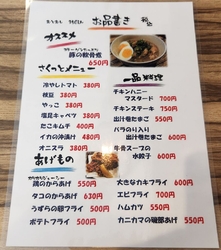 お品書き
オススメ
豚の軟骨煮
650円
さくっとメニュー
冷やしトマト 380円
枝豆 380円
やっこ 380円
塩昆キャベツ 380円
たこキムチ 400円
イカの沖漬け 480円
オニスラ 380円
あげもの
鶏のからあげ 550円
タコのからあげ 630円
うずらの卵フライ 550円
ポテトフライ 500円
一品料理
チキンハニー
マスタード 700円
チキンステーキ 750円
出汁巻たまご 550円
バラのり入り
出汁巻たまご 600円
牛骨スープの
水餃子 600円
大きなカキフライ 600円
エビフライ 700円
ハムカツ 550円
カニカマの磯部あげ 550円